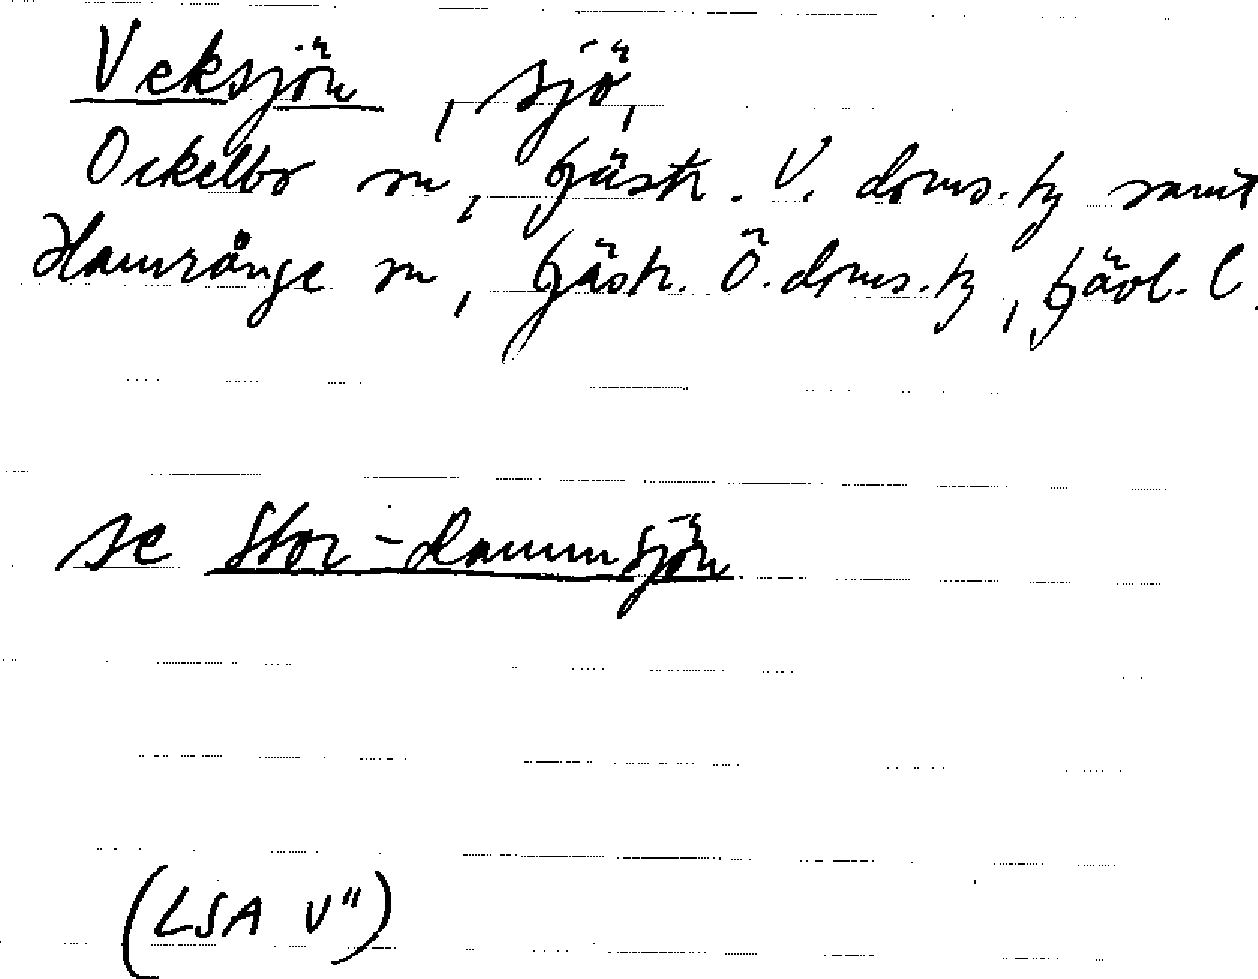 Veksjön, sjö,
Ockelbo sn, Gästr. V. doms.tg samt
Hamrånge sn, Gästr. Ö. doms.tg, Gävl. l.
se Stor-Hammsjön
(LSA V")